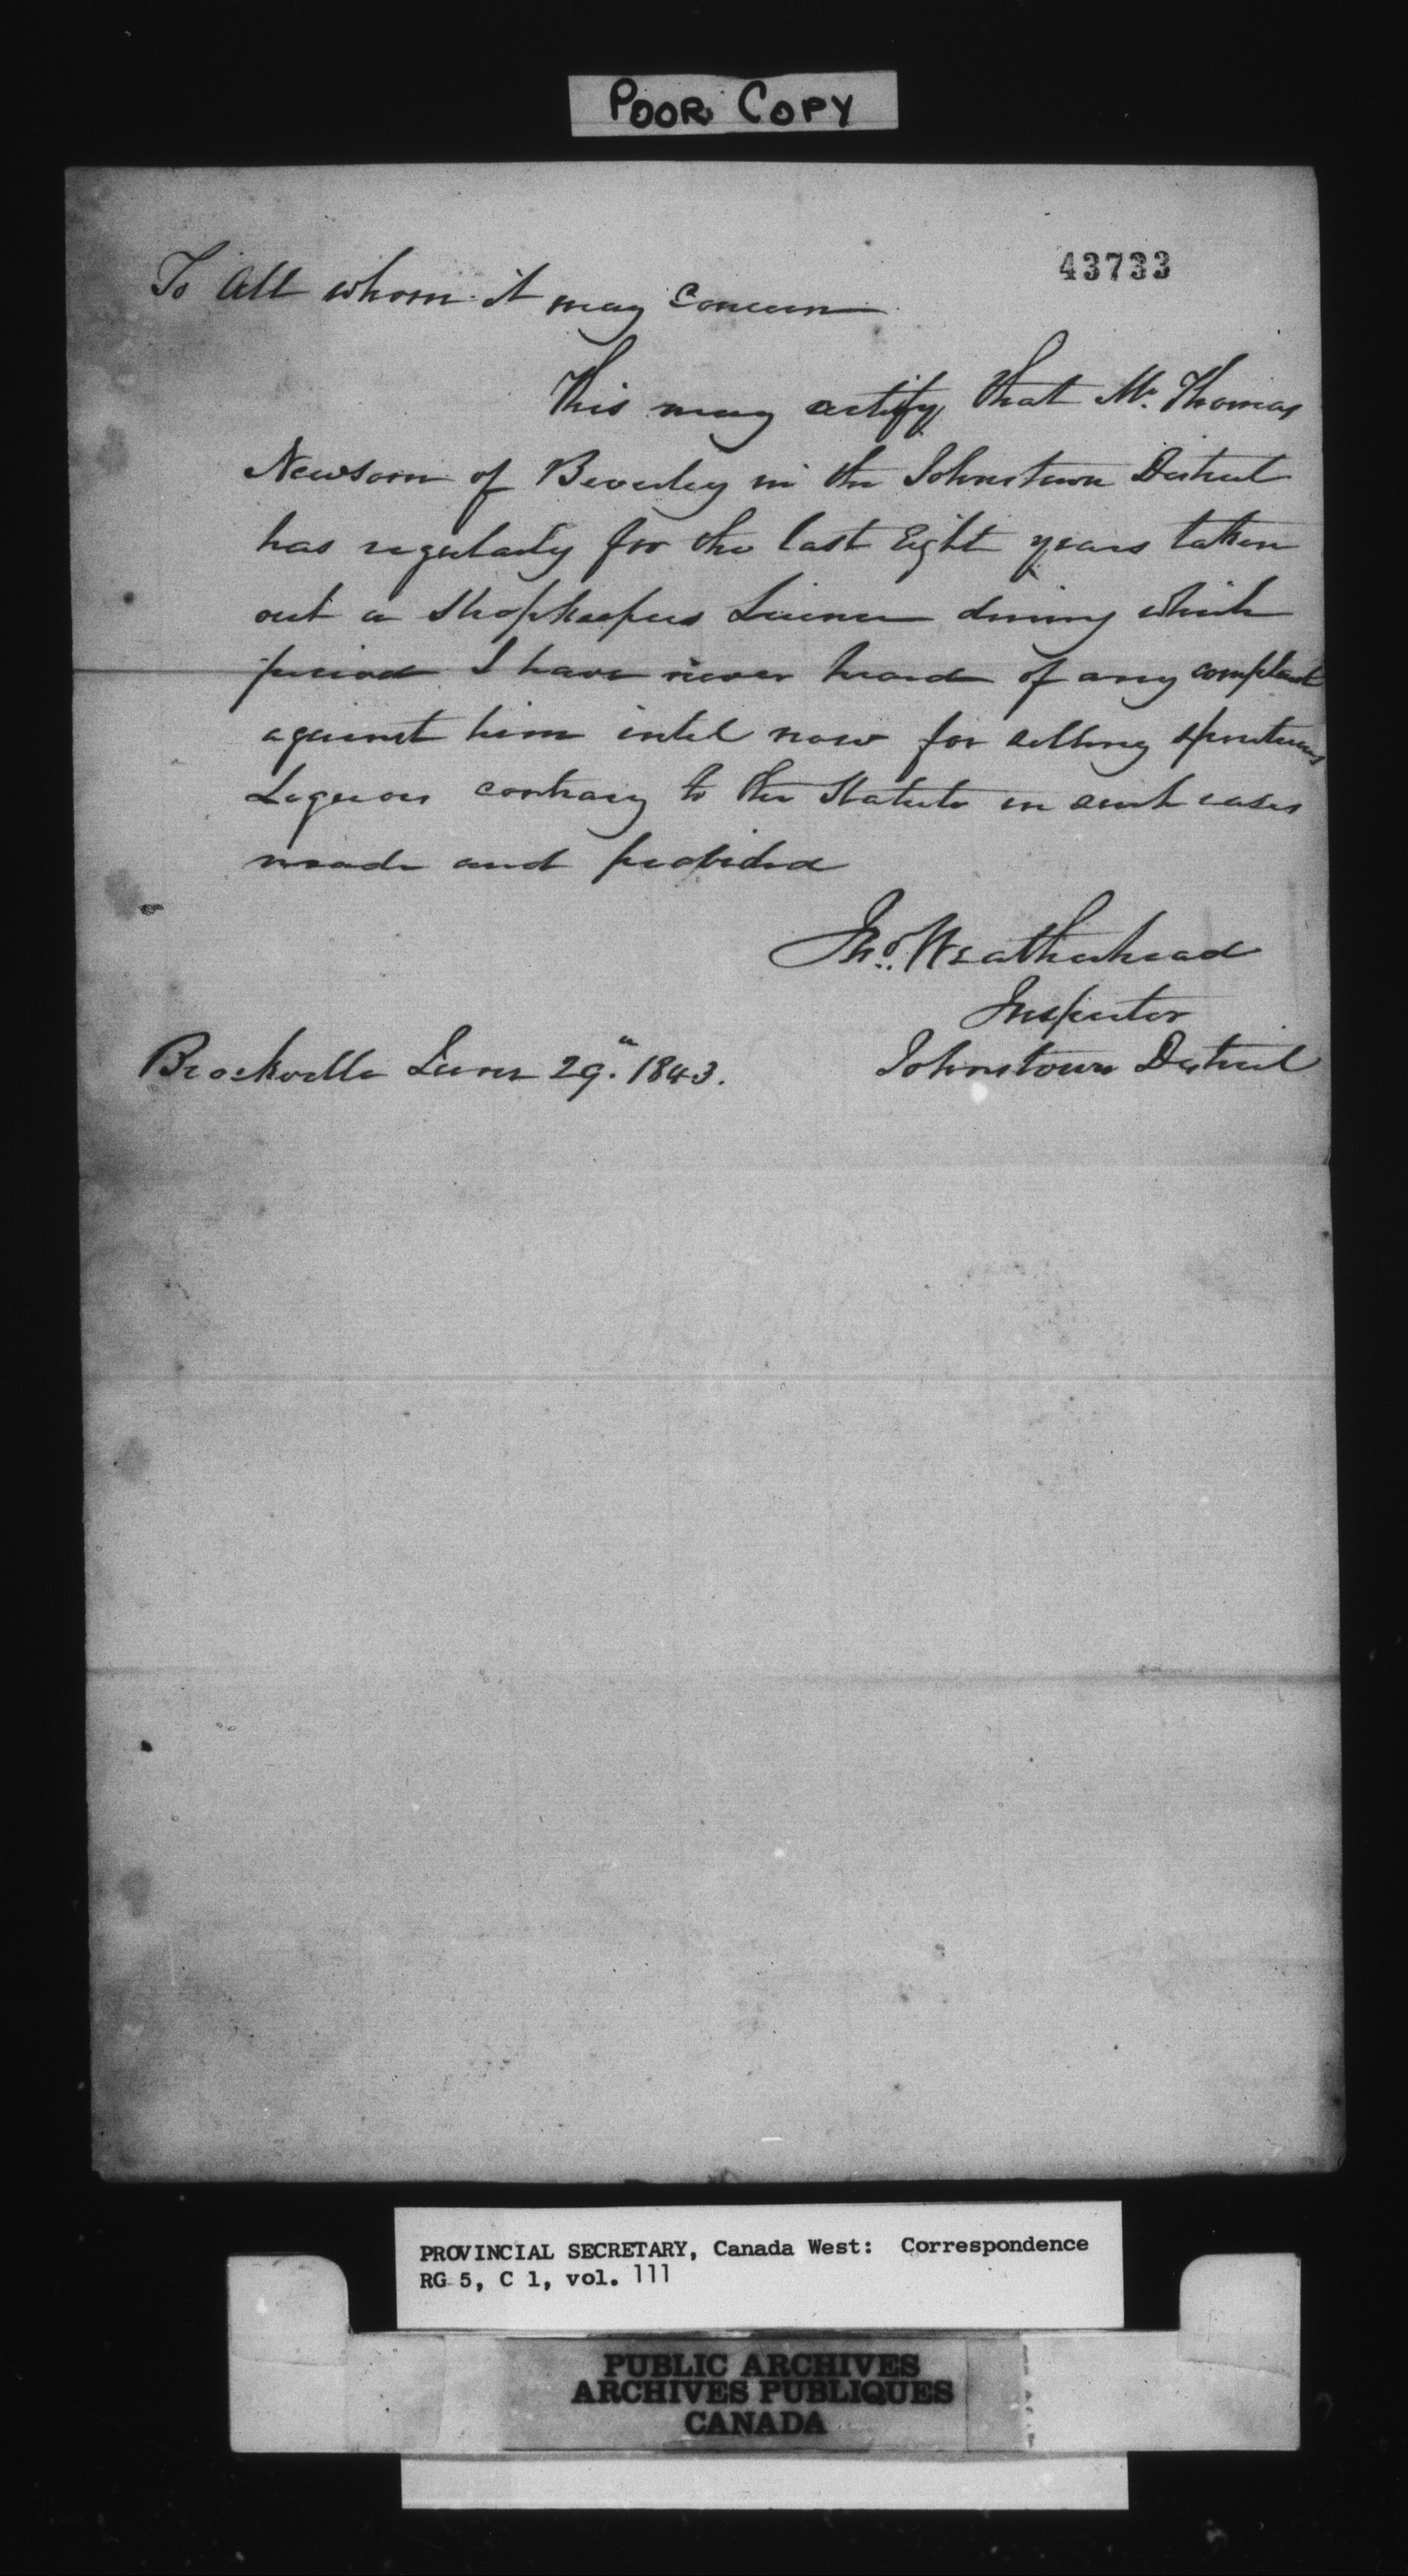 POOR COPY
43733
To All whom it may Concern
This may certify that Mr. Thomas
Newsom of Beverley in the Johnstown District
has regularly for the last Eight years taken
out a Shopkeepers Licence during which
period I have never heard of any complaint
against him intil now for selling spirituous
Liquors contrary to the Statute in such cases
made and provided
Jno. Weatherhead
Inspector
Johnstown District
Brockville June 29th 1843.
PROVINCIAL SECRETARY, Canada West: Correspondence
RG 5, C 1, vol. 111
PUBLIC ARCHIVES
ARCHIVES PUBLIQUES
CANADA